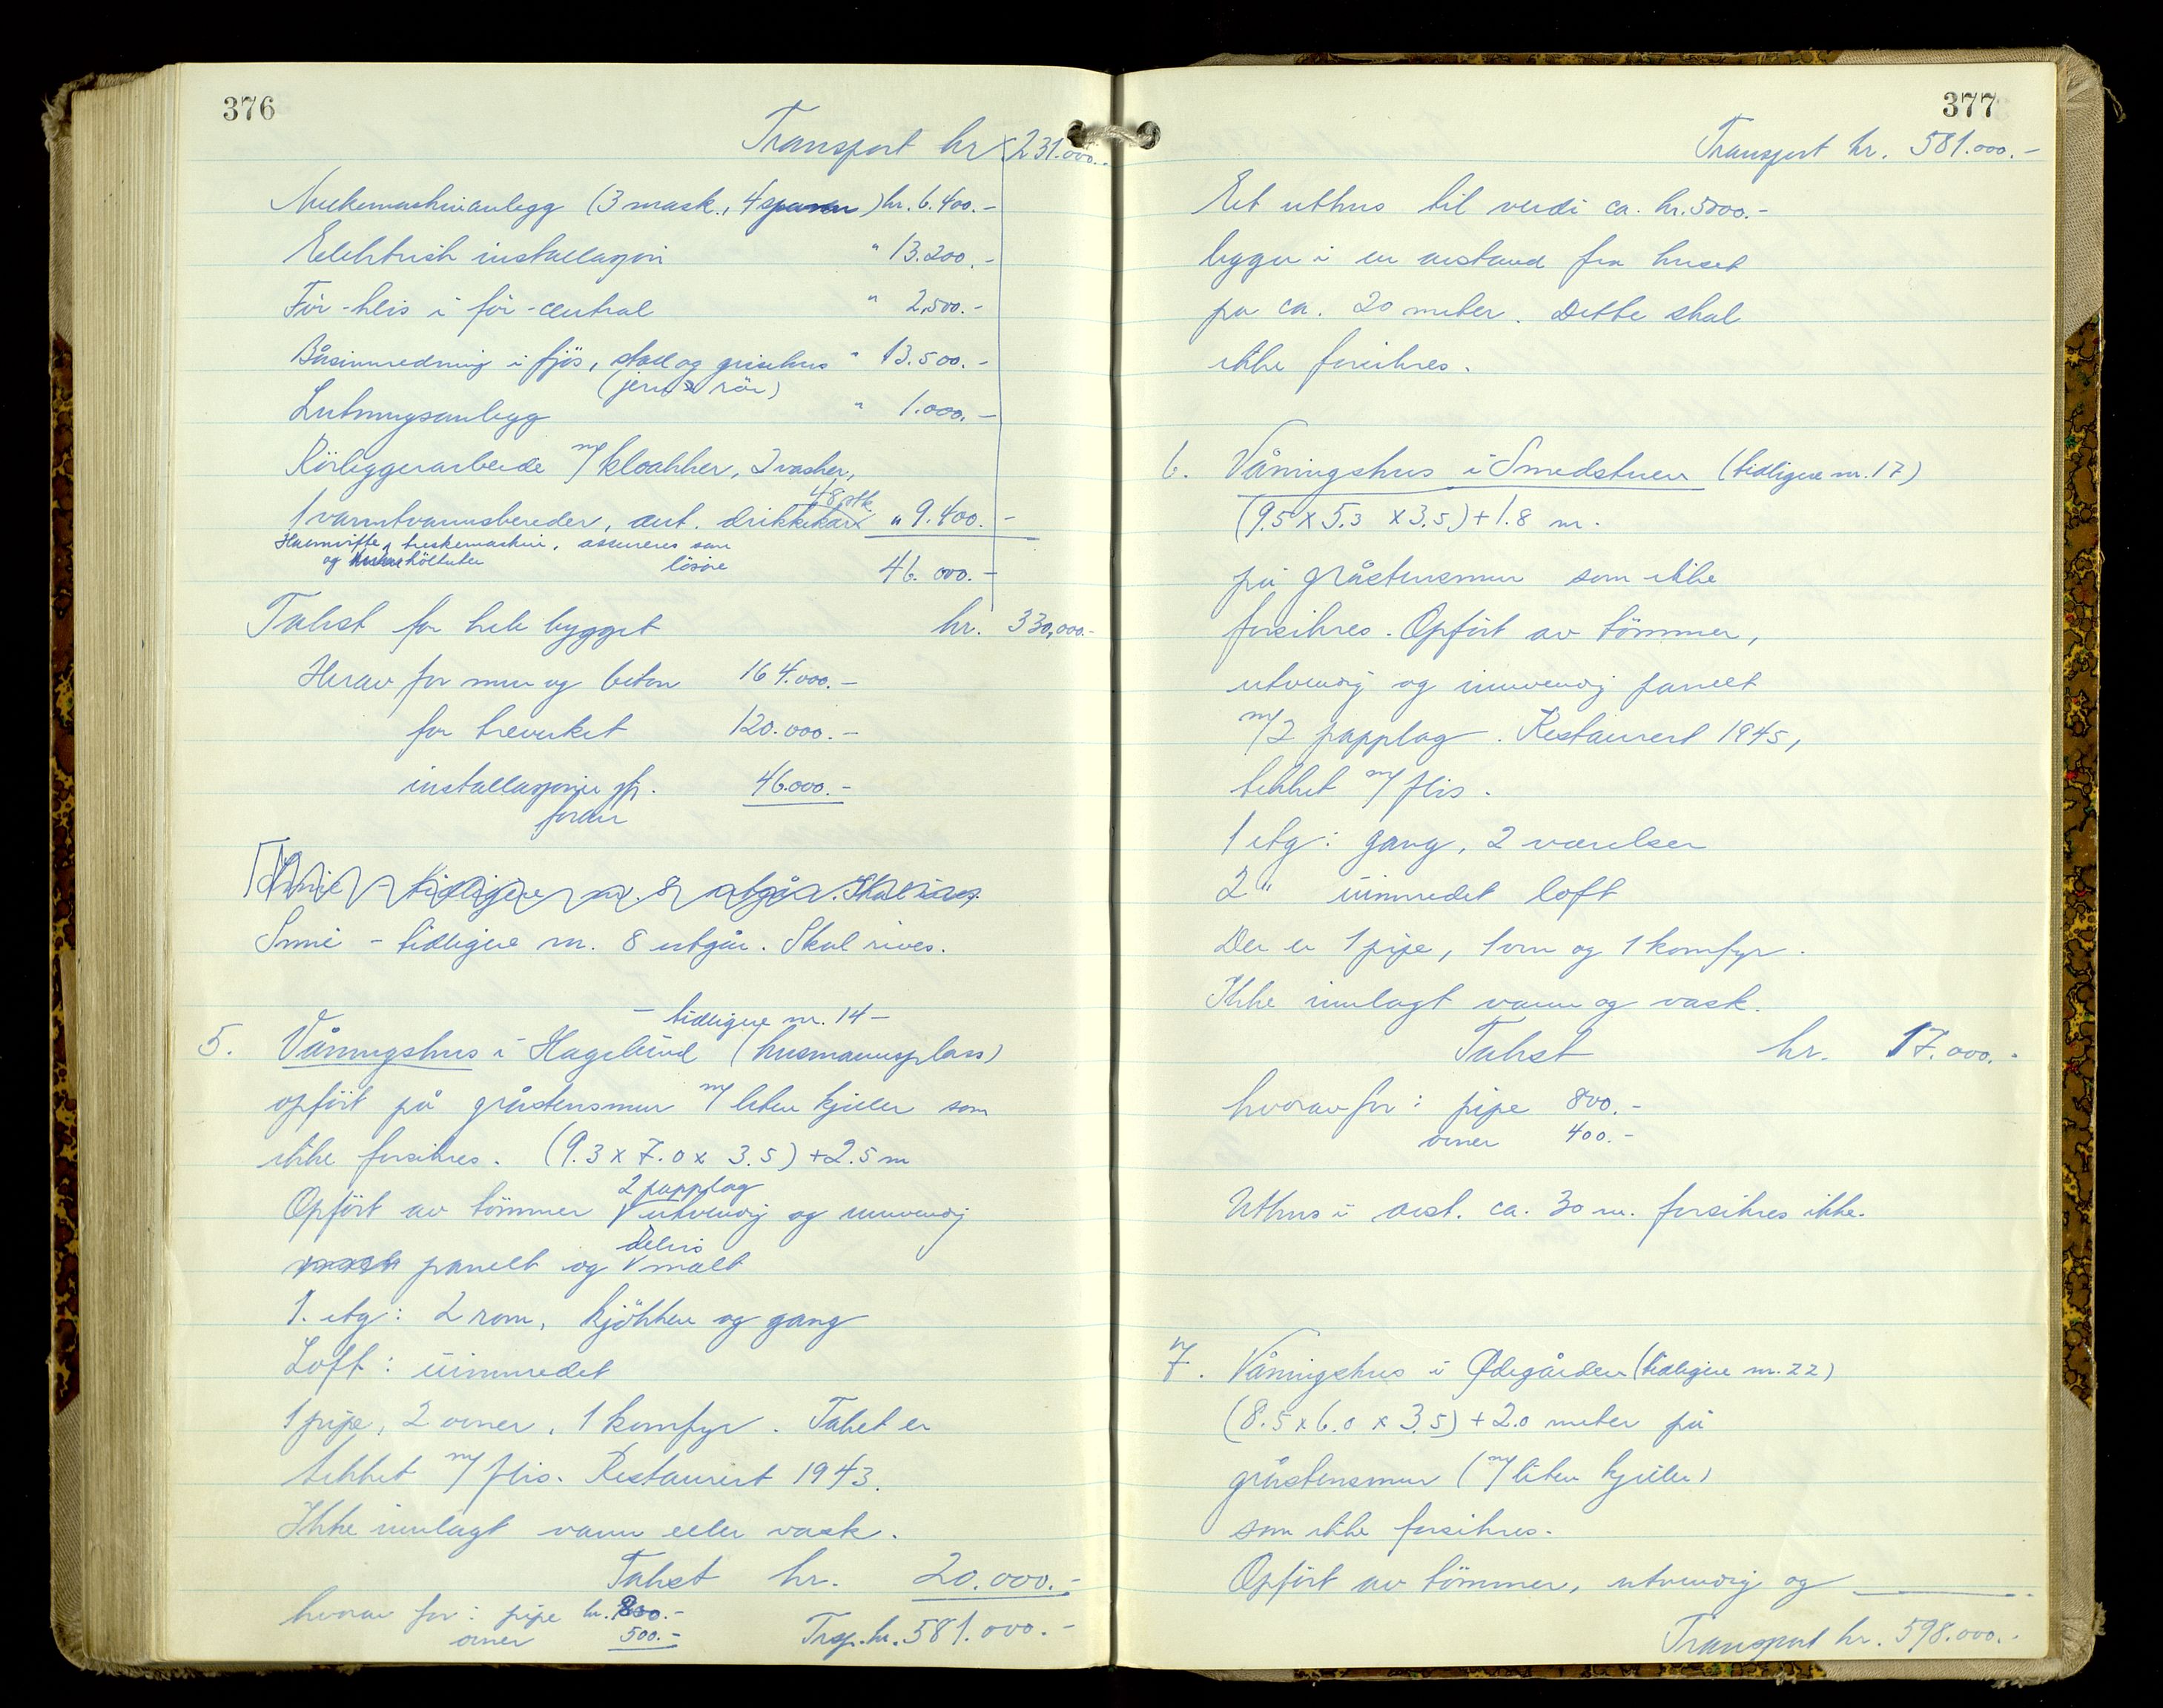 376
Transport kr 231.000.-
Melkemaskinanlegg (3 mask., 4 spann) kr. 6.400.-
Elektrisk installasjon " 13.200.-
Fôr-heis i fôr-central " 2.500.-
Båsinnredning i fjös, stall og grisehus " 13.500.-
(jern rör)
Lutningsanlegg " 1.000.-
Rörleggerarbeide m/ kloakker, 2 vasker,
48 stk.
1 varmtvannsbereder, aut. drikkekar " 9.400.-
treskemaskin, assureres som
og lösöre
46.000.-
Takst for hele bygget kr. 330.000.-
Herav for mur og beton 164.000.-
for treverket 120.000.-
installasjoner 46.000.-
foran
Smie - tidligere nr. 8 utgår. Skal rives.
Smie - tidligere nr. 8 utgår. Skal rives.
- tidligere nr. 14 -
5. Våningshus i Hagelund (husmannsplass)
opfört på gråstensmur m/ liten kjeller som
ikke forsikres. (9.3 x 7.0 x 3.5) + 2.5 m
2 papplag
Opfört av tömmer utvendig og innvendig
delvis
panelt og malt
1. etg: 2 rom, kjökken og gang
Loft: uinnredet
1 pipe, 2 ovner, 1 komfyr. Taket er
tekket m/ flis. Restaurert 1943.
Ikke innlagt vann eller vask.
Takst kr. 20.000.-
hvorav for: pipe kr. 800.-
ovner 500.- Trsp. kr. 581.000.-
377
Transport kr. 581.000.-
Et uthus til verdi ca. kr. 5000.-
ligger i en avstand fra huset
på ca. 20 meter. Dette skal
ikke forsikres.
6. Våningshus i Smedstuen (tidligere nr. 17)
(9.5 x 5.3 x 3.5) + 1.8 m.
på gråstensmur som ikke
forsikres. Opfört av tömmer,
utvendig og innvendig panelt
m/ 2 papplag. Restaurert 1945,
tekket m/ flis.
1 etg: gang, 2 værelser
2 " uinnredet loft
Der er 1 pipe, 1 ovn og 1 komfyr.
Ikke innlagt vann og vask.
Takst kr. 17.000.-
hvorav for: pipe 800.-
ovner 400.-
Uthus i avst. ca. 30 m. forsikres ikke.
7. Våningshus i Ødegården (tidligere nr. 22)
(8.5 x 6.0 x 3.5) + 2.0 meter på
gråstensmur (m/ liten kjeller)
som ikke forsikres.
Opfört av tömmer, utvendig og
Transport kr. 598.000.-